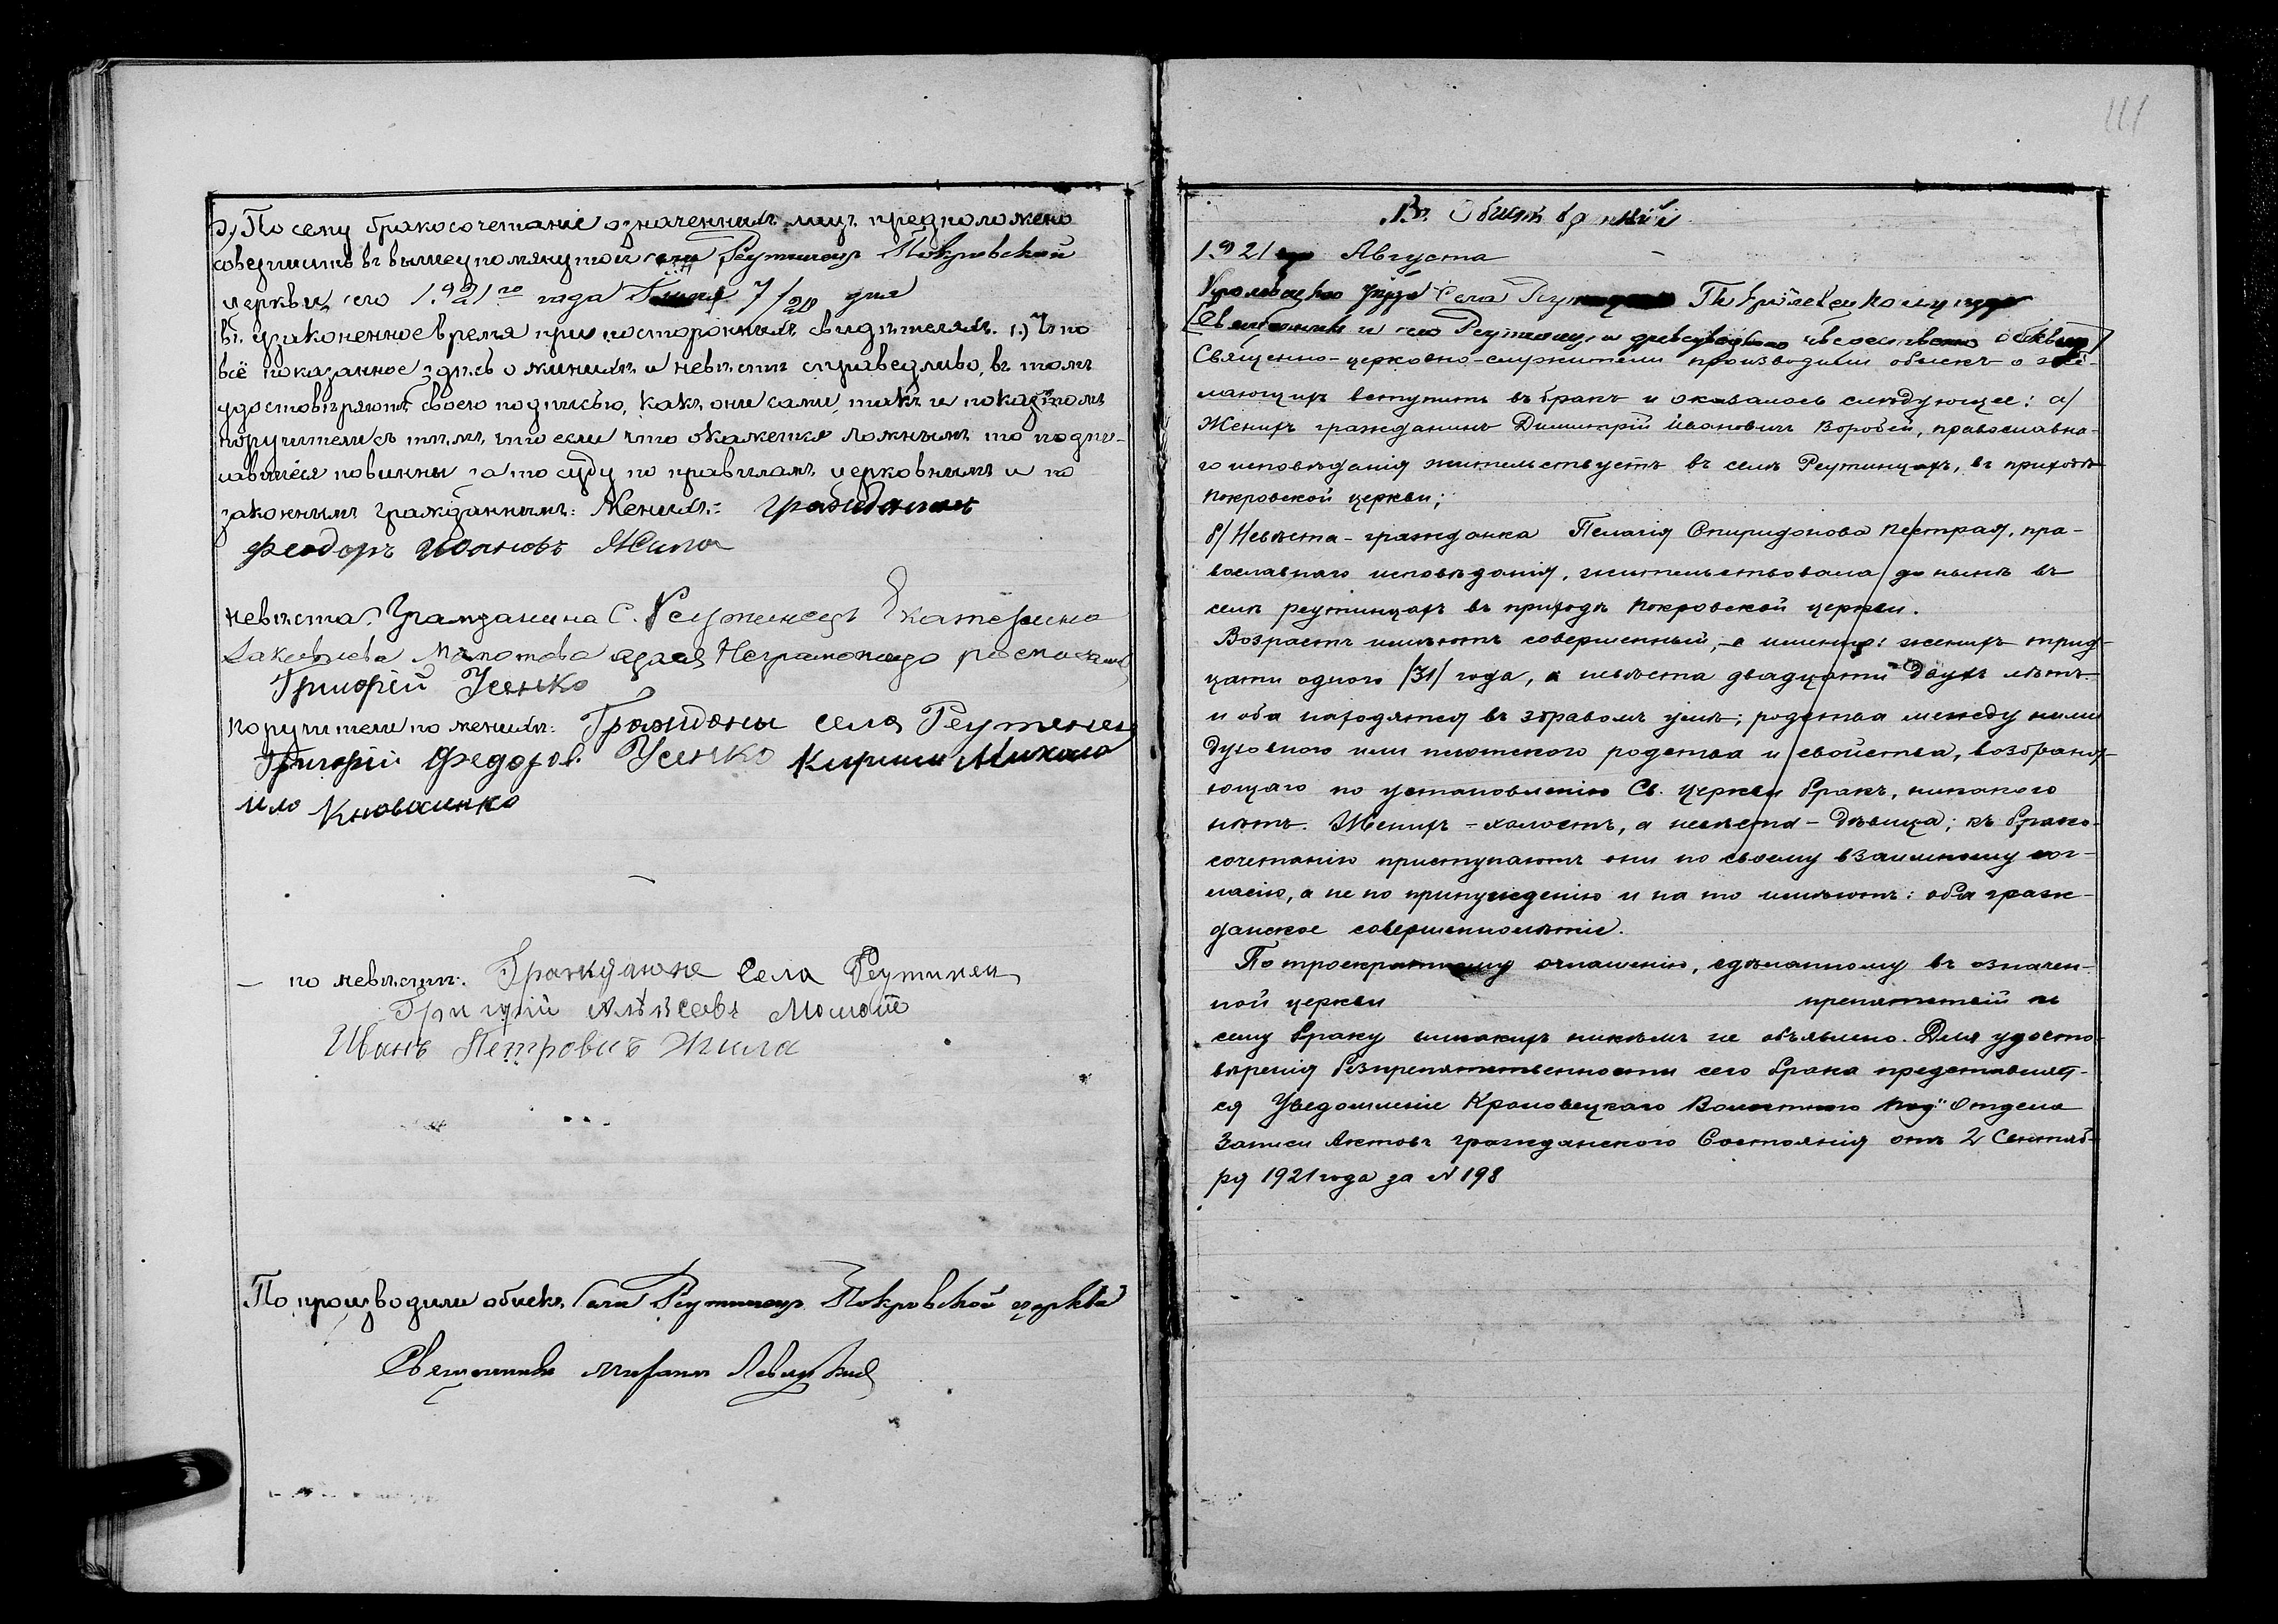 5) По сему бракосочетаніе означенныхъ лицъ предположено
совершить въ вышеупомянутой села Реутинцъ Покровской
церкви, сего 1921го года 7/20 дня
въ узаконенное время при постороннихъ свидѣтеляхъ. 11) Что
всё показанное здѣсь о женихѣ и невѣстѣ справедливо, въ томъ
удостовѣряютъ своею подписью, какъ они сами, такъ и по каждомъ
поручители съ тѣмъ, что если что окажется ложнымъ то подпи-
савшіеся повинны за то суду по правиламъ церковнымъ и по
законамъ гражданскимъ: Женихъ: гражданинъ
Феодоръ Ивановъ Жила
невѣста: Гражданина С. Реутинецъ Екатерина
Неграмотнаго
Григорій Усенко
поручители по женихѣ: Граждоны села Реутенец
Григорій Федоров. Усенко Кирилл Михаило
ило
по невѣстѣ: Граждане Села Реутинец
Григорій
Иванъ Петровичъ Жила
Производили обыскъ села Реутинцъ Покровской церкви
Священникъ Левицкій
111
1921 Августа
Уѣзда Села
Священникъ и Реутинцъ
Священно-церковно-служители производили обыскъ о же-
лающихъ вступить въ бракъ и оказалось слѣдующее: а/
Женихъ гражданинъ Димитрій Ивановичъ Воробей, православна-
го исповѣданія жительствуетъ въ селѣ Реутинцахъ, въ приходѣ
Покровской церкви;
б/ Невѣста - гражданка Пелагія Спиридонова Пестрая, пра-
вославнаго исповѣданія, жительствовала до нынѣ въ
селѣ реутинцахъ въ приходѣ Покровской церкви.
Возрастъ имѣютъ совершенный, а именно: женихъ трид-
цати одного /31/ года, а невѣста двадцати двухъ лѣтъ
и оба находятся въ здравомъ умѣ; родства между ними
духовного или плотского родства и свойства, возбраня-
ющаго по установленію Св. церкви бракъ, никакого
нѣтъ. Женихъ - холостъ, а невѣста - дѣвица; къ брако-
сочетанію приступаютъ они по своему взаимному сог-
ласію, а не по принужденію и на то имѣютъ: оба граж-
данское совершеннолѣтіе.
По троекратному оглашенію, сдѣланному въ означен-
ной церкви препятствій къ
сему браку никакихъ никѣмъ не объявлено. Для удосто-
вѣренія безпрепятственности сего брака представляет-
ся Уведомленіе Кролевецкаго Волостного Под"Отдела
Записи Актовъ гражданского Состоянія отъ 2 Сентяб-
ря 1921 года за N 198